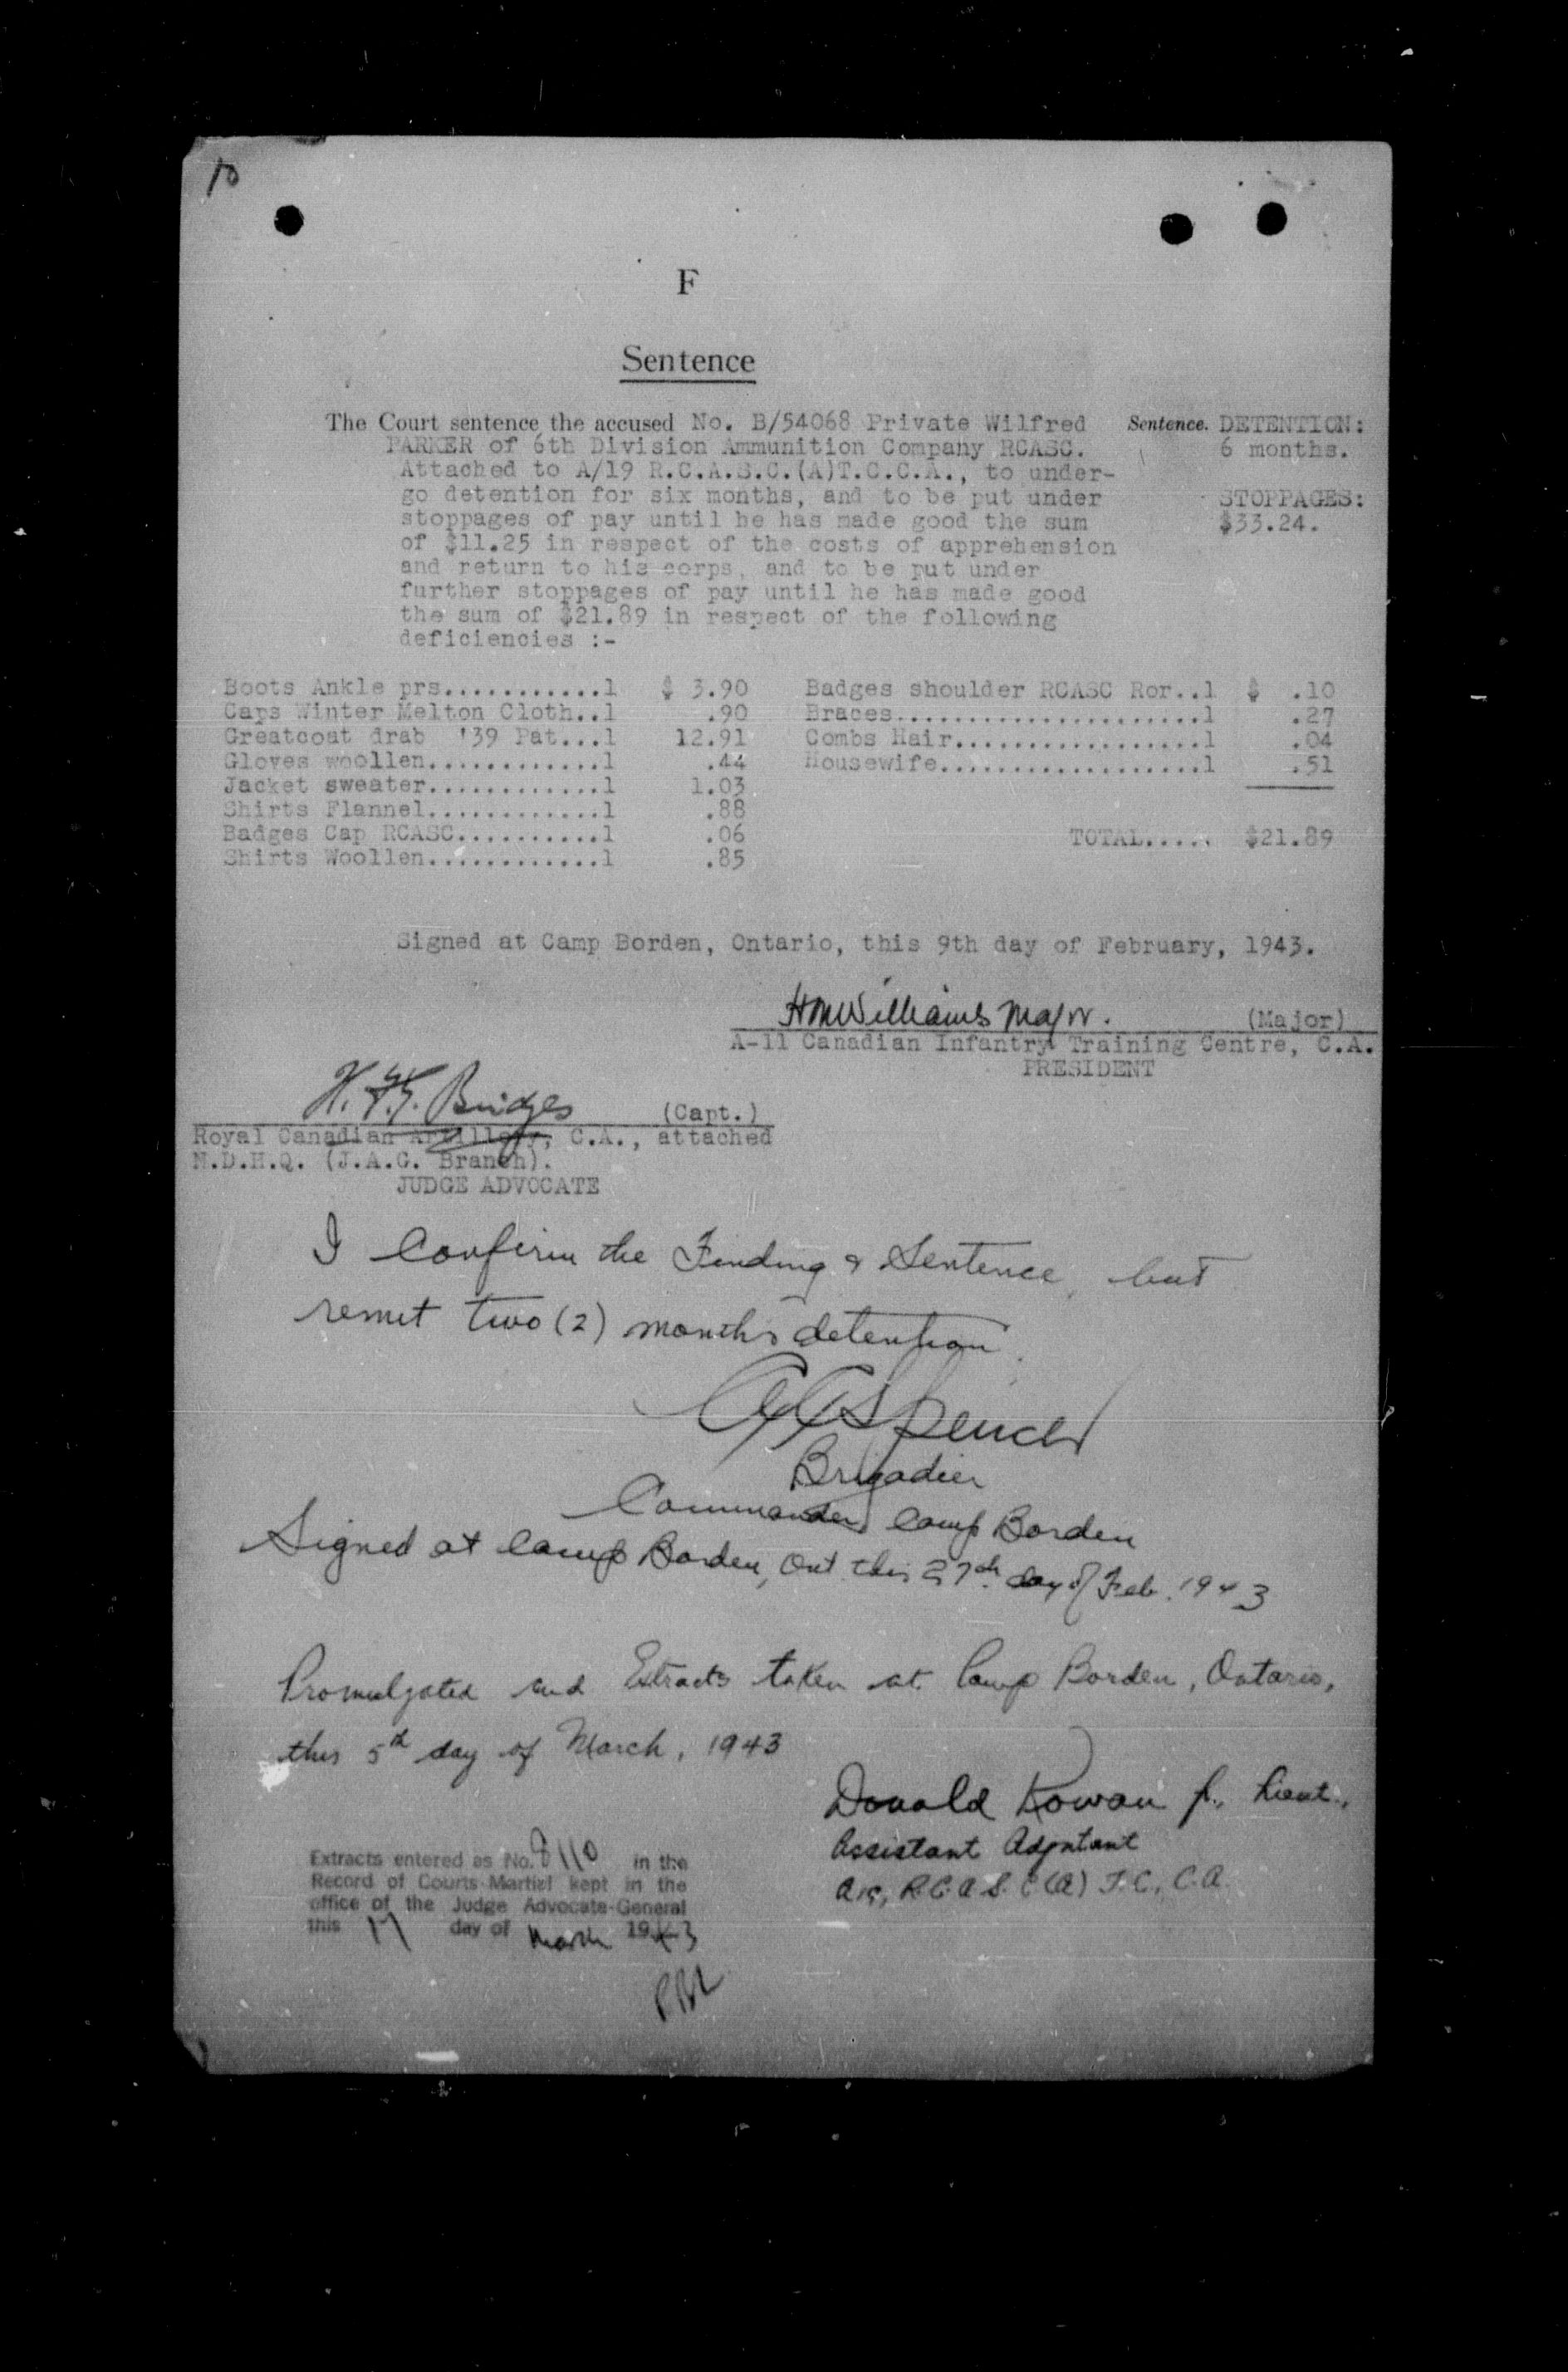 10
F
Sentence
The Court sentence the accused No. B/54068 Private Wilfred
PARKER of 6th Division Ammunition Company RCASC.
Attached to A/19 R.C.A.S.C.(A)T.C.C.A., to under-
go detention for six months, and to be put under
stoppages of pay until he has made good the sum
of $11.25 in respect of the costs of apprehension
and return to his corps, and to be put under
further stoppages of pay until he has made good
the sum of $21.89 in respect of the following
deficiencies :-
Sentence. DETENTION:
6 months.
STOPPAGES:
$33.24.
Boots Ankle prs...........1 $ 3.90
Caps Winter Melton Cloth..1 .90
Greatcoat drab '39 Pat...1 12.91
Gloves woollen............1 .44
Jacket sweater............1 1.03
Shirts Flannel............1 .88
Badges Cap RCASC..........1 .06
Shirts Woollen............1 .85
Badges shoulder RCASC Ror..1 $ .10
Braces.....................1 .27
Combs Hair.................1 .04
Housewife..................1 .51
TOTAL..... $21.89
Signed at Camp Borden, Ontario, this 9th day of February, 1943.
HMWilliams Major.
(Major)
A-11 Canadian Infantry Training Centre, C.A.
PRESIDENT
H. F.G. Bridges (Capt.)
Royal Canadian Artillery, C.A., attached
N.D.H.Q. (J.A.G. Branch).
JUDGE ADVOCATE
I Confirm the Finding & Sentence, but
remit two (2) months detention.
Spencer
Brigadier
Commander Camp Borden
Signed at Camp Borden, Ont this 27th day of Feb. 1943
Promulgated and Extracts taken at Camp Borden, Ontario,
this 5th day of March, 1943
Donald Rowan Lieut.,
Assistant Adjutant
A19, R.C.A.S.C (A) T.C., C.A.
Extracts entered as No. 8110 in the
Record of Courts-Martial kept in the
office of the Judge Advocate-General
this 17 day of March 1943